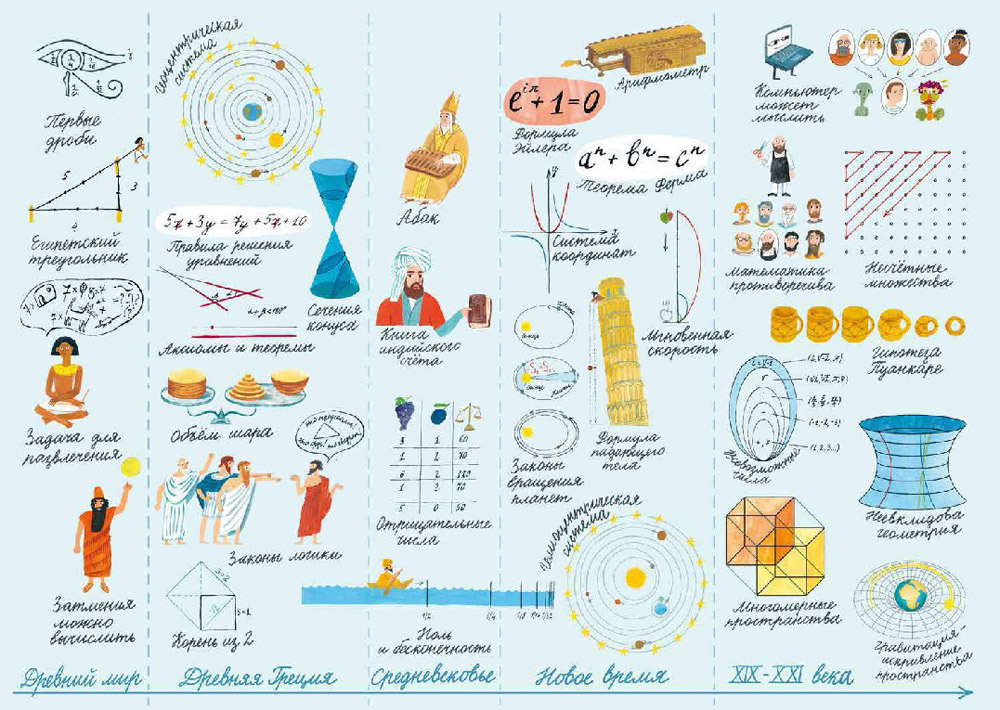 1/2
1/4
1/16
Первые
дроби
5
3
4
Египетский
треугольник
Задача для
развлечения
Затмения
можно
вычислить
Древний мир
Геоцентрическая
система
5x + 3y = 7y + 5x + 10
Правила решения
уравнений
Сечения
конуса
Аксиомы и теоремы
Объём шара
Законы логики
S=2
S=1
Корень из 2
Древняя Греция
Абак
Книга
индийского
счёта
Отрицательные
числа
1/2
1/4
1/8
Ноль
и бесконечность
Средневековье
Арифмометр
e^iπ + 1 = 0
Формула
Эйлера
aⁿ + bⁿ = cⁿ
Теорема Ферма
y
x
Система
координат
Мгновенная
скорость
Законы
вращения
планет
Формула
падающего
тела
Гелиоцентрическая
система
Новое время
Компьютер
может
мыслить
математика
противоречива
Несчётные
множества
Гипотеза
Пуанкаре
(1, 2, 3...)
Всевозможные
числа
Неевклидова
геометрия
Многомерные
пространства
Гравитация -
искривление
пространства
XIX-XXI века